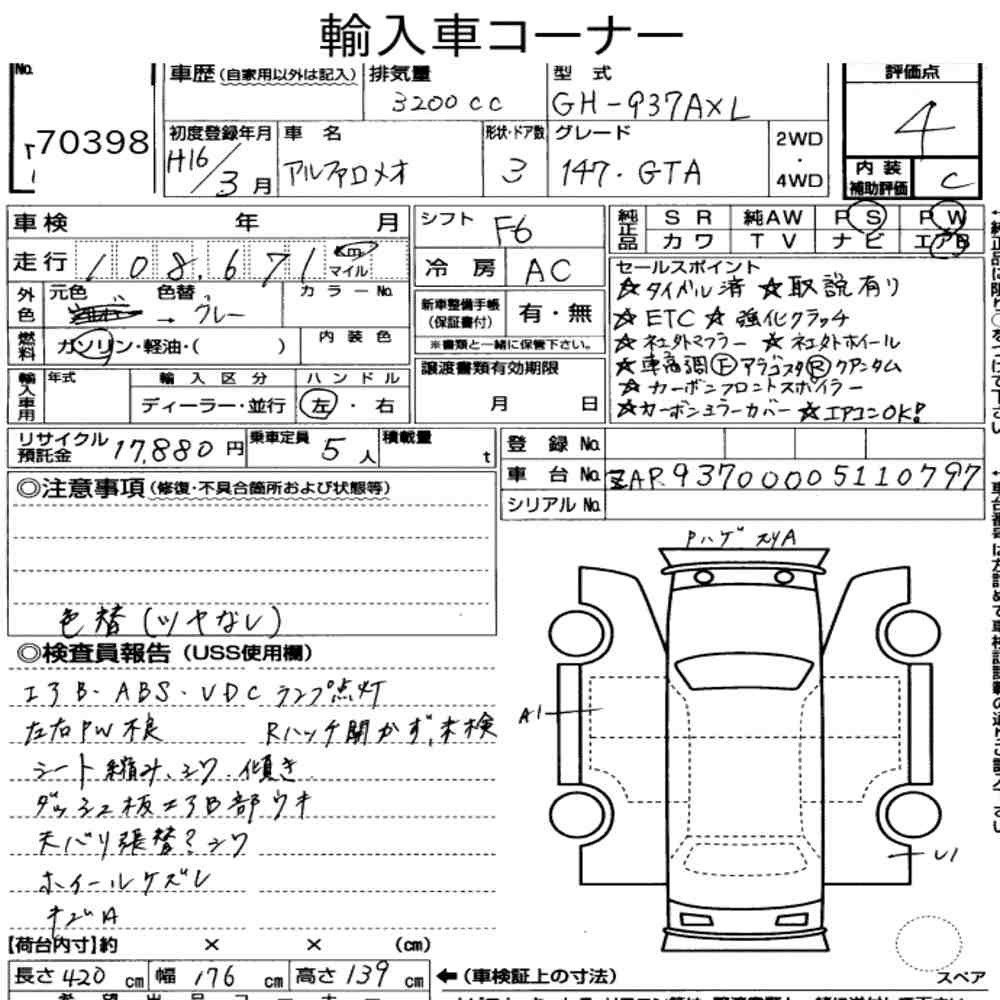 輸入車コーナー
No.
70398
車歴(自家用以外は記入)
排気量
3200cc
型式
GH-937AXL
評価点
4
初度登録年月
H16/3月
車名
アルファロメオ
形状・ドア数
3
グレード
147・GTA
2WD
・
4WD
内装
補助評価
C
車検 年 月
シフト
F6
純正品
SR 純AW PS PW
カワ TV ナビ エアB
走行 108,671 km
マイル
冷房 AC
セールスポイント
☆タイベル済 ☆取説有り
☆ETC ☆強化クラッチ
☆社外マフラー ☆社外ホイール
☆車高調Ⓕアラゴスタ Ⓡクアンタム
☆カーボンフロントスポイラー
☆カーボンミラーカバー ☆エアコンOK!
外色
元色 色替 カラーNo.
→ グレー
新車整備手帳
(保証書付)
有・無
※書類と一緒に保管下さい。
燃料
ガソリン・軽油・( )
内装色
譲渡書類有効期限
月 日
輸入車用
年式
輸入区分
ディーラー・並行
ハンドル
左・右
リサイクル
預託金
17,880円
乗車定員
5人
積載量
t
登録No.
車台No. ZAR93700005110797
シリアルNo.
◎注意事項(修復・不具合箇所および状態等)
色替(ツヤなし)
◎検査員報告(USS使用欄)
エアB・ABS・VDCランプ点灯
左右PW不良 Rハッチ開かず、未検
シート縮み、シワ、傾き
ダッシュ板エアB部ウキ
天バリ張替?シワ
ホイールケズレ
キズA
Pハゲ スリA
A1
U1
【荷台内寸】約 × × (cm)
長さ420cm 幅176cm 高さ139cm
←(車検証上の寸法)
スペア